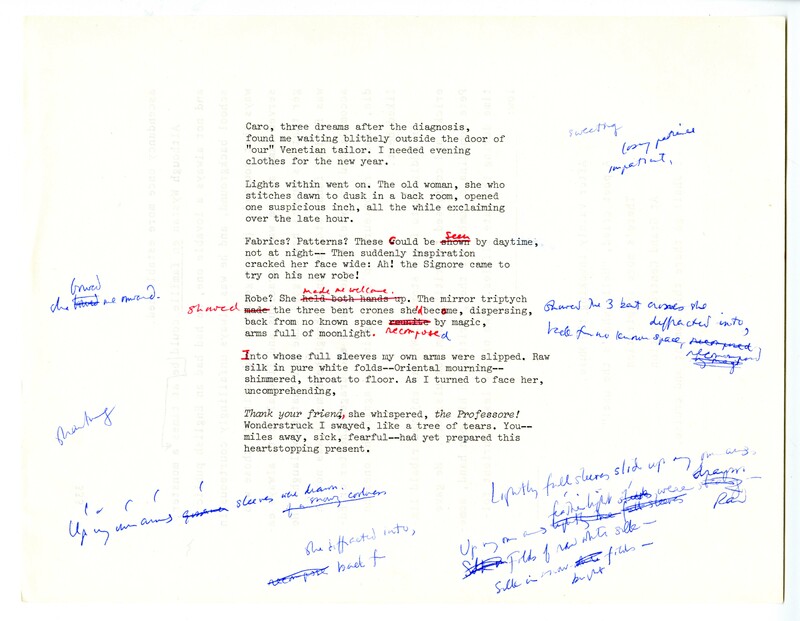 Caro, three dreams after the diagnosis,
found me waiting blithely outside the door of
"our" Venetian tailor. I needed evening
clothes for the new year.
sweeting
losing patience
impatient,
Lights within went on. The old woman, she who
stitches dawn to dusk in a back room, opened
one suspicious inch, all the while exclaiming
over the late hour.
seen
Fabrics? Patterns? These Could be shown by daytime,
not at night-- Then suddenly inspiration
cracked her face wide: Ah! the Signore came to
try on his new robe!
bowed
she me onward.
made me welcome.
Robe? She held both hands up. The mirror triptych
showed made the three bent crones she'd become, dispersing,
back from no known space reunite by magic,
recomposed
arms full of moonlight.
showed the 3 bent crones she
diffracted into,
back fr no known space, recomposed
Into whose full sleeves my own arms were slipped. Raw
silk in pure white folds--Oriental mourning--
shimmered, throat to floor. As I turned to face her,
uncomprehending,
Thank your friend, she whispered, the Professore!
Wonderstruck I swayed, like a tree of tears. You--
miles away, sick, fearful--had yet prepared this
heartstopping present.
Up my own arms sleeves were drawn.
she diffracted into,
recompose back f
Lightly full sleeves slid up my own arms
Raw
Up my own arms
folds of raw white silk—
Silk in snow folds—
bright